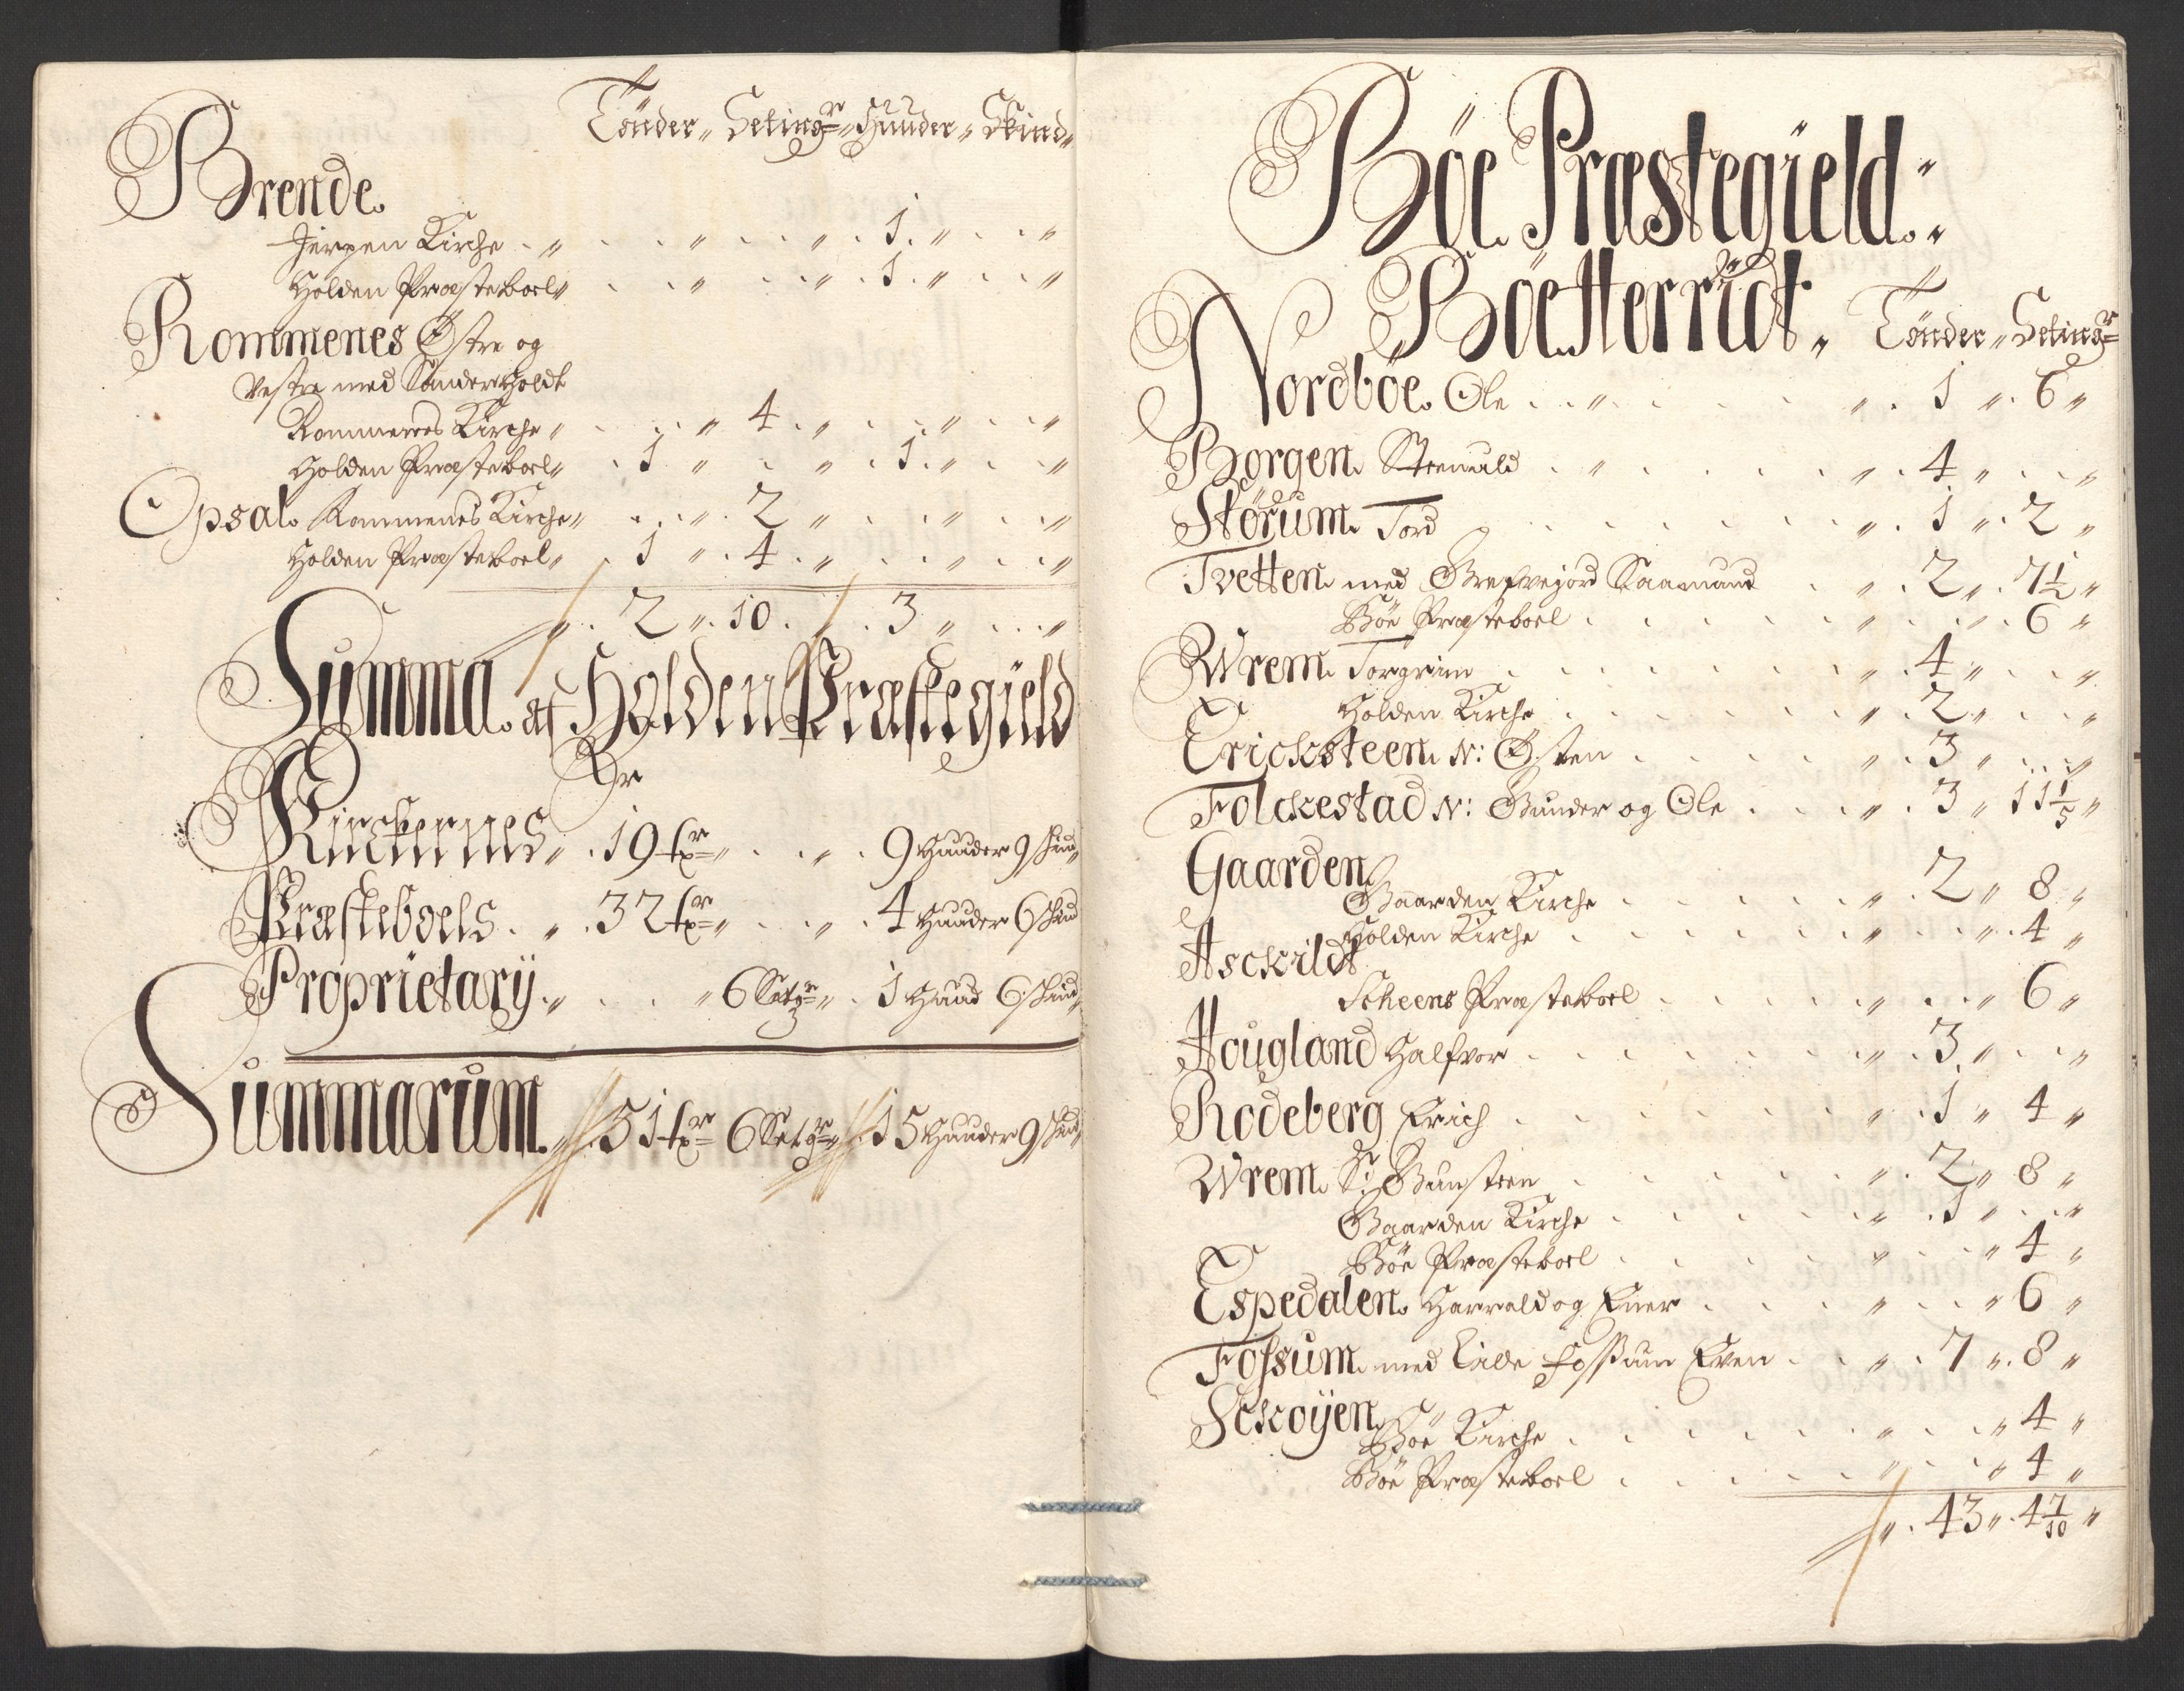 Tönder „ Setingr „ Huuder „ Skind „
Brende.
Jerpen Kirche „ „ „ 1 „ „
Holden Præsteboel „ „ „ 1 „ „
Rommenes Østre og
Vestre med Sønderholdt
Rommenes Kirche „ „ 4 „ „ „
Holden Præsteboel „ 1 „ „ 1 „ „
Opsal. Rommenes Kirche „ „ 2 „ „ „
Holden Præsteboel „ 1 „ 4 „ „ „
„ 2 „ 10 „ 3 „ „
Summa. af Holden Præstegield
Er
Kirckernes „ 19 txr „ „ 9 Huuder 9 skind
Præsteboels „ 32 txr „ „ 4 Huuder 6 skind
Proprietarij „ „ 6 Setgr „ 1 Huud 6 skind
Summarum „ 51 txr 6 Setgr „ 15 Huuder 9 skind
Böe Præstegield „
Böe Herridt „ Tönder „ Setingr
Nordböe. Ole „ „ 1 „ 6 „
Borgen. Steenuld „ „ 4 „ „
Störum. Tord „ 1 „ 2 „
Tvetten. med Grefvejord Saamund „ 2 „ 7½ „
Böe Præsteboel „ „ 6 „
Wrem. Torgrim „ 4 „ „
Holden Kirche „ 2 „ „
Ericksteen. N: Østen „ 3 „ „
Folckestad N: Gunder og Ole „ 3 „ 11 1/5 „
Gaarden
Gaarden Kirche „ 2 „ 8 „
Holden Kirche „ „ 4 „
Asckildt
Scheens Præsteboel „ „ 6 „
Hougland Halfvor „ 3 „ „
Rodeberg Erich „ 1 „ 4 „
Wrem. S: Gunsteen „ 2 „ 8 „
Gaarden Kirche „ 1 „ „
Böe Præsteboel „ „ 4 „
Espedalen. Harrald og Ener „ „ 6 „
Fossum. med Lille Fossum Even „ 7 „ 8 „
Sckoyen
Böe Kirche „ „ 4 „
Böe Præsteboel „ „ 4 „
„ 43 „ 4 7/10 „